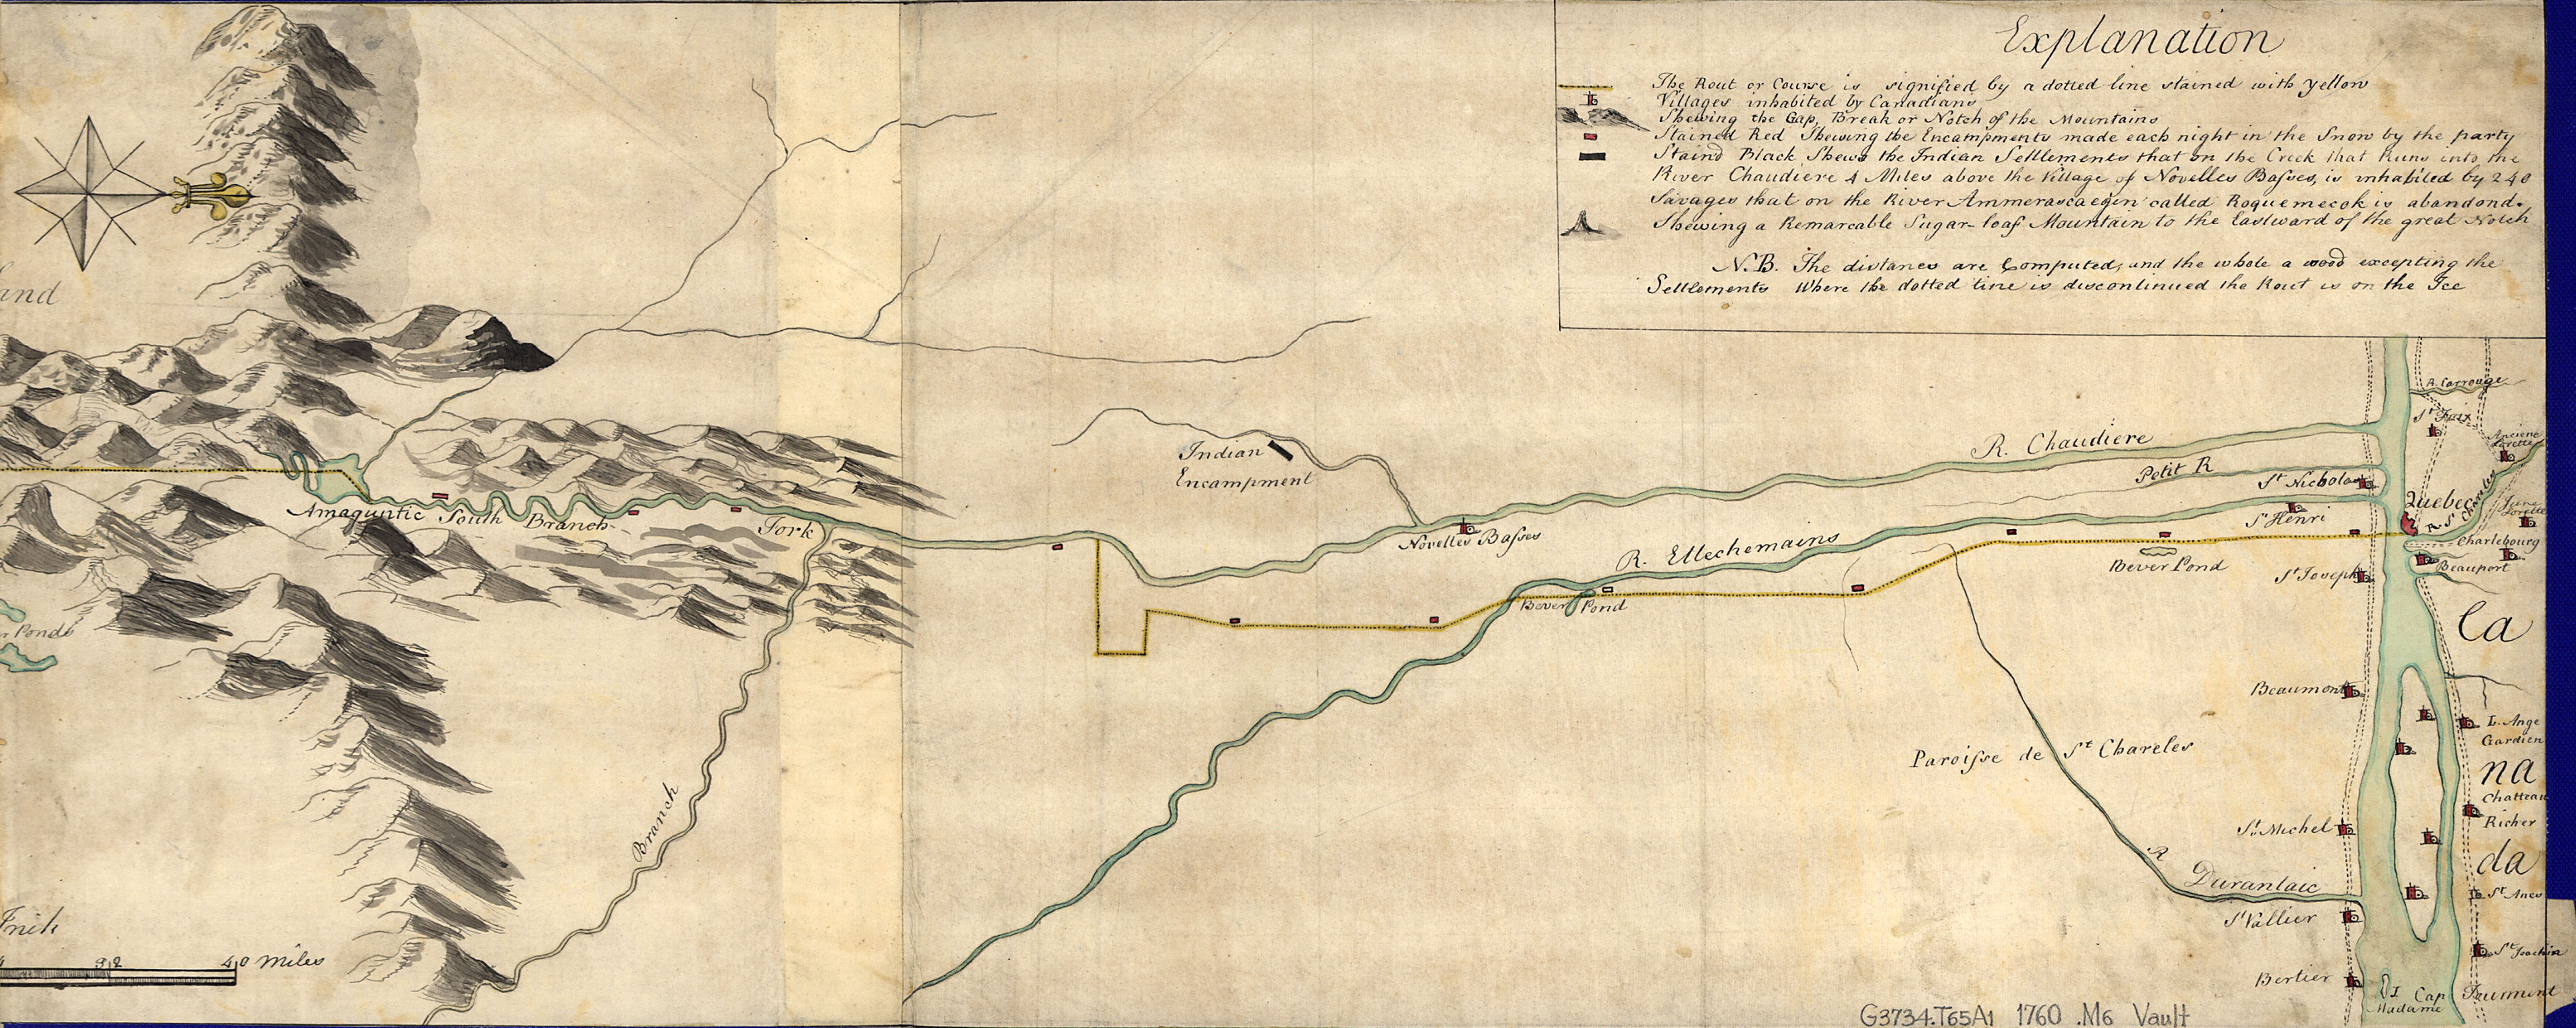 Explanation
The Rout or Course is signified by a dotted line stained with yellow
Villages inhabited by Canadians
Shewing the Gap, Break or Notch of the Mountains
Stained Red Shewing the Encampments made each night in the Snow by the party
Staind Black Shews the Indian Settlements that on the Creek that Runs into the
River Chaudiere 4 Miles above the Village of Novelles Baſses, is inhabited by 240
Savages that on the River Ammerascaegin called Roquemecok is abandond.
Shewing a Remarcable Sugar-loaf Mountain to the Eastward of the great Notch
N.B. The distances are Computed, and the whole a wood excepting the
Settlements Where the dotted line is discontinued the Rout is on the Ice
and
R. Carrouge
St Foix
Anciene
Lorette
R. Chaudiere
Petit R
St Nicholas
Quebec
R. St Charles
Lorette
Indian
Encampment
Amaguntic South Branch
Fork
Novelles Baſses
R. Ettechemains
St Henri
Charlebourg
Beauport
Bever Pond
St Joseph
Bever Pond
Ponds
Ca
Beaumont
L. Ange
Gardien
Paroiſse de St Chareles
na
Chatteau
Richer
St Michel
Branch
R
Durantaic
da
St Anes
St Vallier
St Joachin
32
40 Miles
Bertier
I
Madame
Cap
G3734.T65A1 1760 .M6 Vault